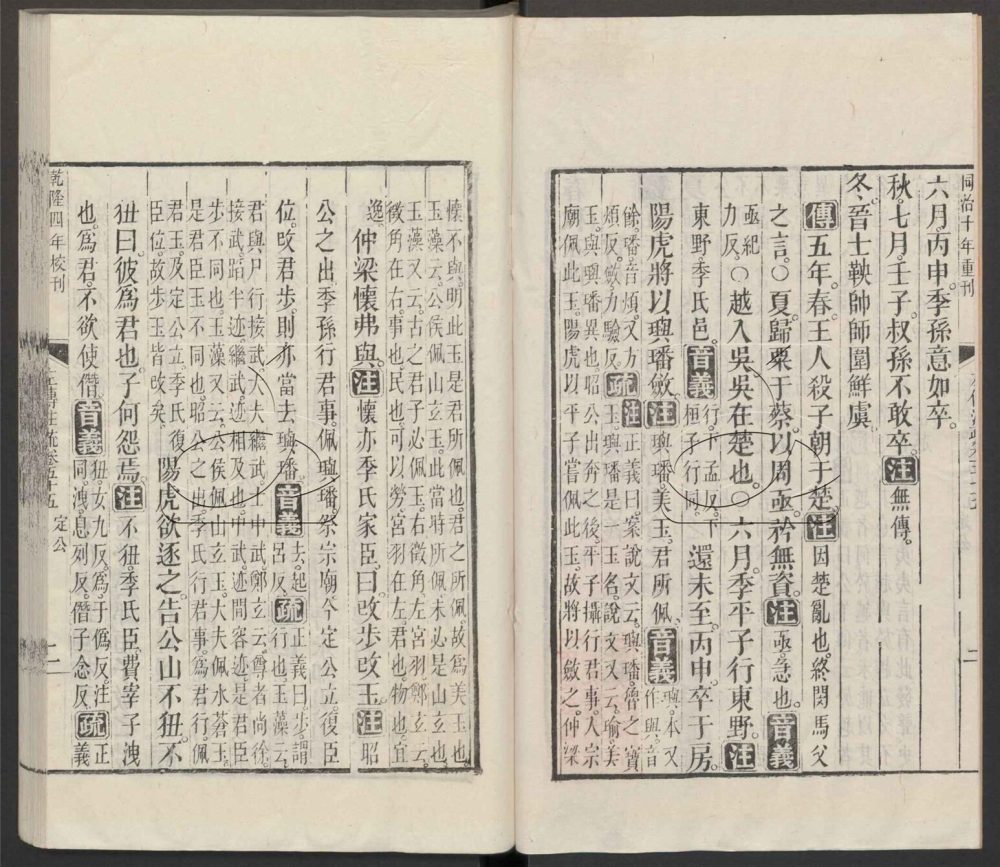 同治十年重刊
六月。丙申。季孫意如卒。
秋。七月。壬子。叔孫不敢卒。注無傳。
冬。晉士鞅帥師圍鮮虞。
傳五年。春。王人殺子朝于楚。注因楚亂也。終閔馬父
之言。〇夏。歸粟于蔡。以周亟。矜無資。注亟。急也。音義
亟。紀
力反。〇越入吳。吳在楚也。〇六月。季平子行東野。注
東野。季氏邑。音義行。下孟反。下
桓子行同。還未至。丙申。卒于房。
陽虎將以璵璠斂。注璵璠。美玉。君所佩。音義璵。本又
作與。音
餘。璠音煩。又方
煩反。斂。力驗反。疏注正義曰。案說文云。璵璠。魯之寶
玉。璵與璠異也。昭公出奔之後。平子攝行君事。入宗
廟佩此玉。陽虎以平子嘗佩此玉。故將以斂之。仲梁
懷不與。明此玉是君所佩也。君之所佩。故爲美玉也。
玉藻云。公侯佩山玄玉。此當時所佩。未必是山玄也。
玉藻又云。古之君子必佩玉。右徵角。左宮羽。鄭玄云。
徵角在右。事也。民也。可以勞。宮羽在左。君也。物也。宜
逸。仲梁懷弗與。注懷亦季氏家臣。曰。改步改玉。注昭
公之出。季孫行君事。佩璵璠。祭宗廟。今定公立。復臣
位。改君步。則亦當去璵璠。音義去。起
呂反。疏正義曰。步。謂
行也。玉藻云。
君與尸行接武。大夫繼武。士中武。鄭玄云。尊者尚徐。
接武。蹈半迹。繼武。迹相及也。中武。迹間容迹。是君臣
步不同也。玉藻又云。公侯佩山玄玉。大夫佩水蒼玉。
是君臣玉不同也。昭公之出。季氏行君事。爲君行。佩
君玉。及定公立。季氏復
臣位。故步玉皆改矣。陽虎欲逐之。告公山不狃。不
狃曰。彼爲君也。子何怨焉。注不狃。季氏臣。費宰子洩
也。爲君。不欲使僭。音義狃。女九反。爲。于僞反。注
同。洩。息列反。僭。子念反。疏正
義
乾隆四年校刊
定公